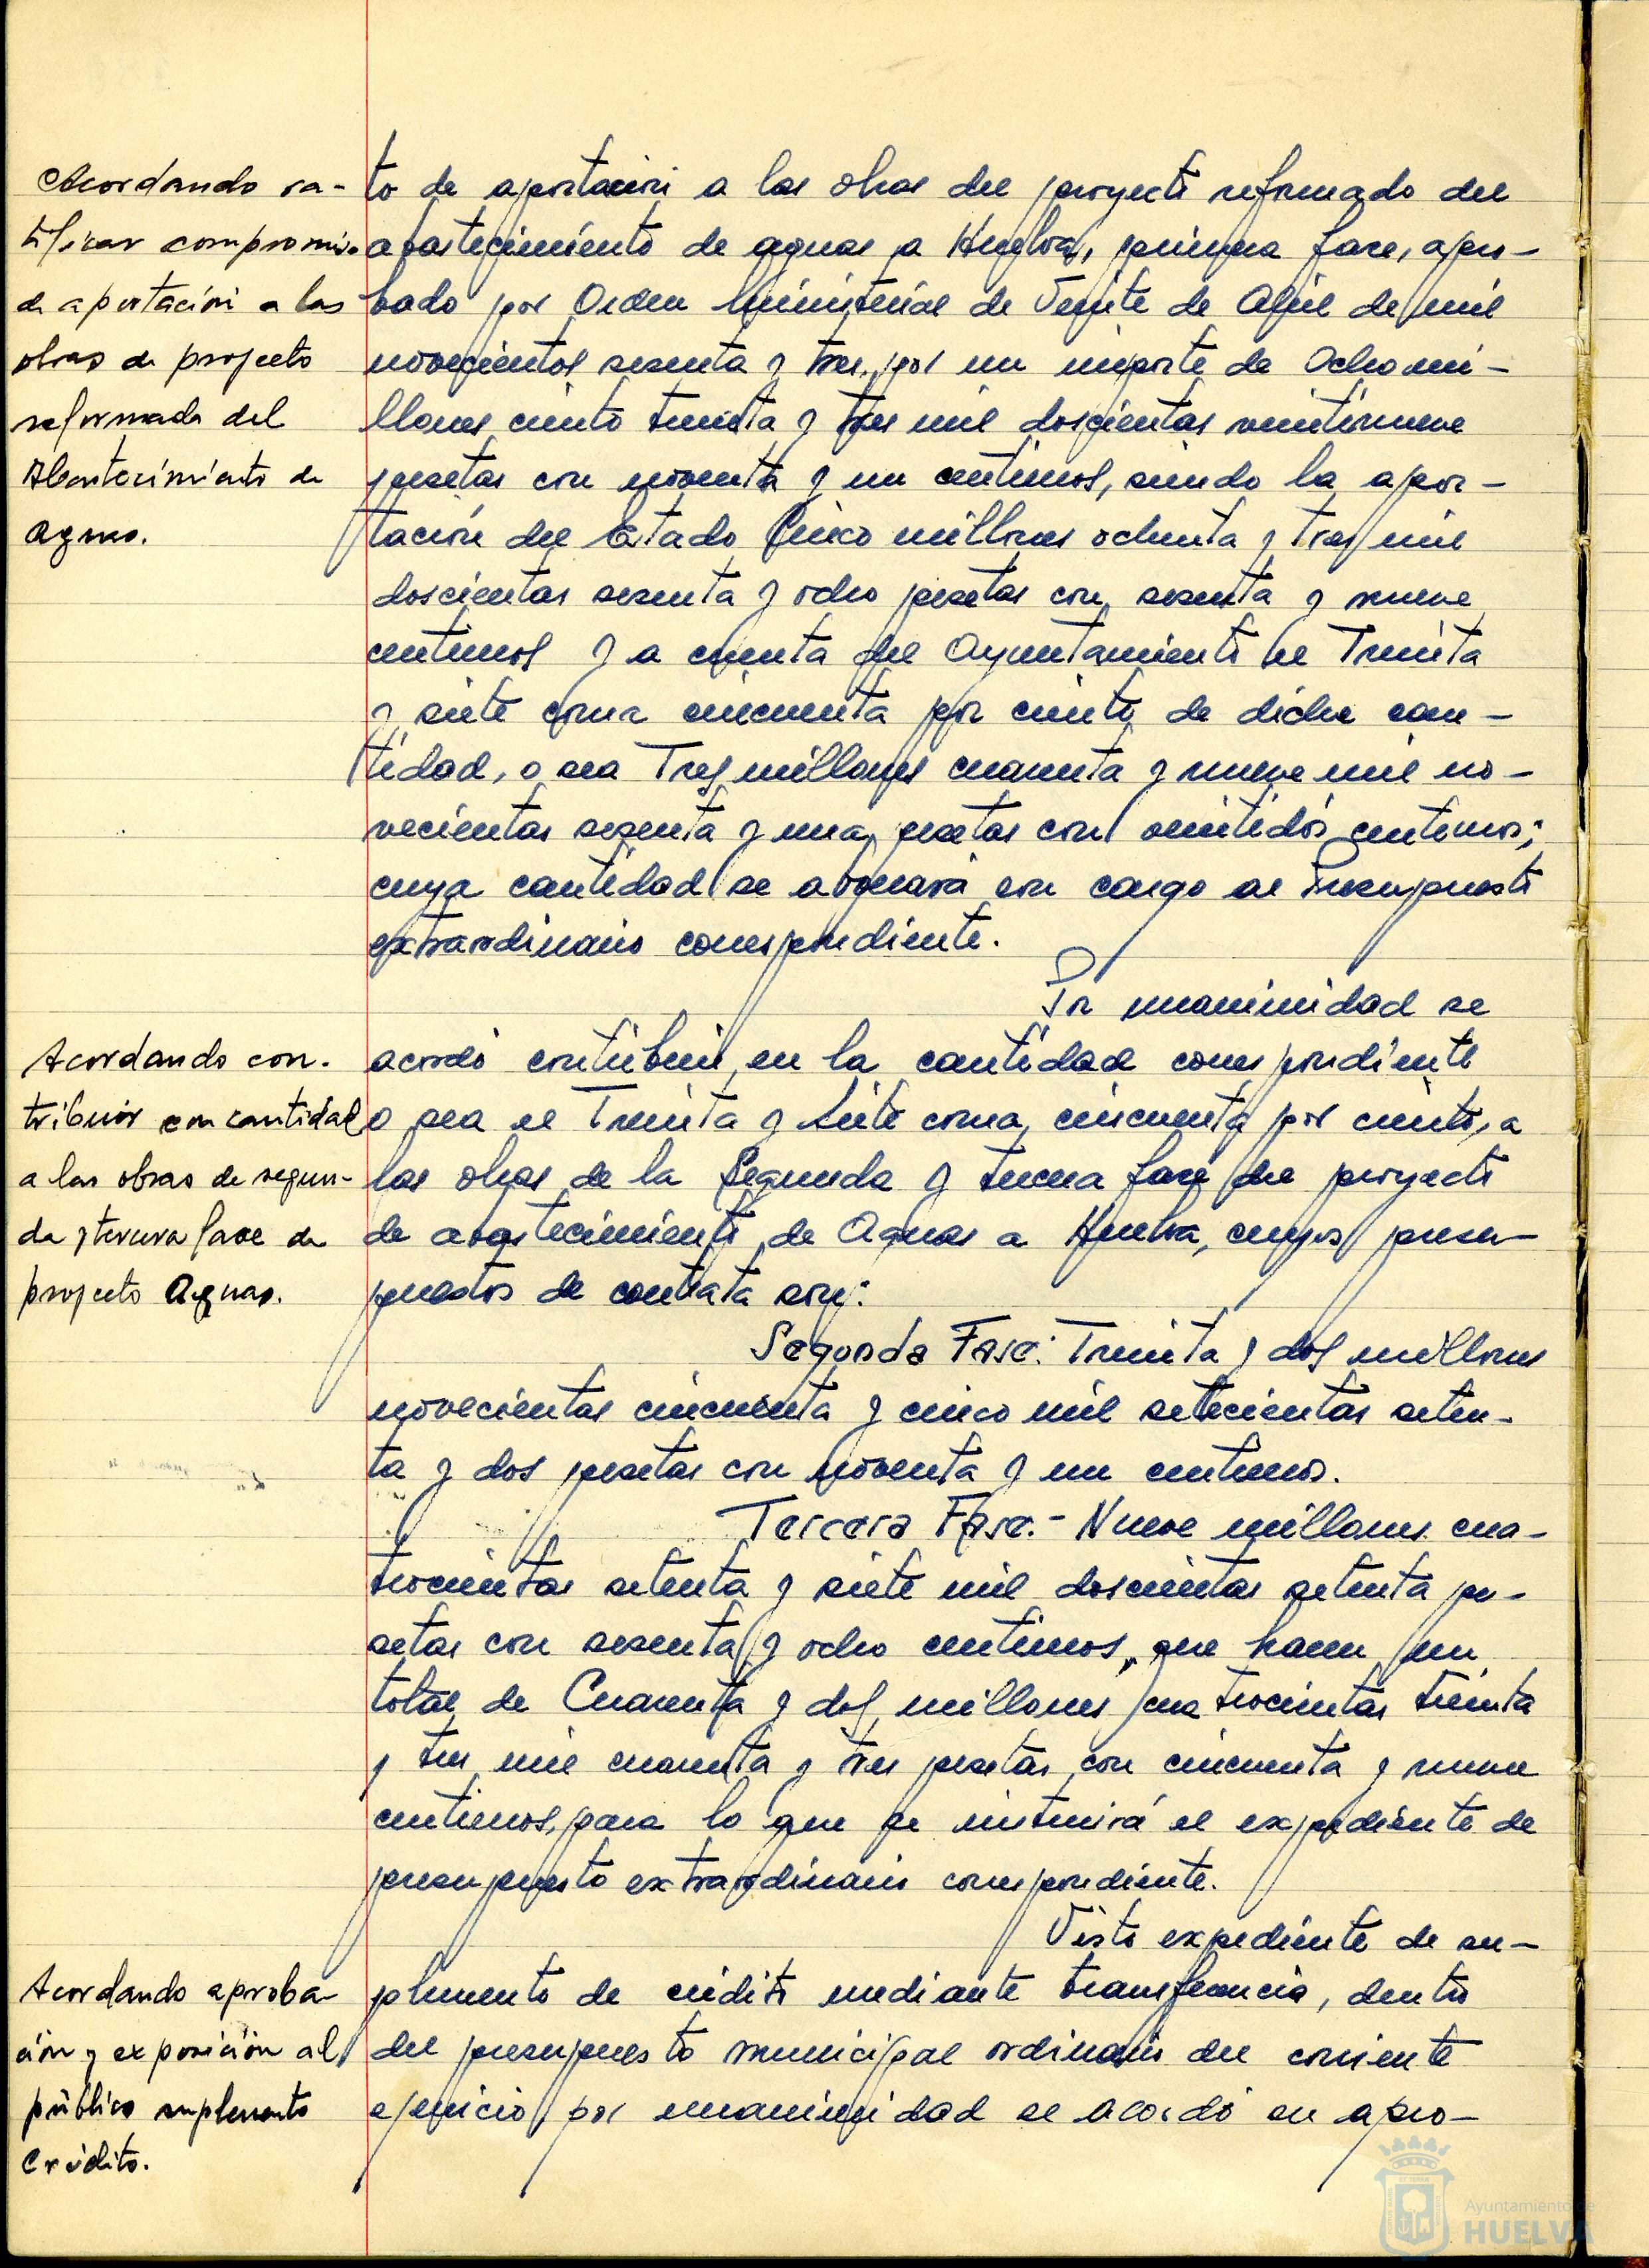 Acordando ra-
tificar compromiso
de aportación a las
obras de proyecto
reformado del
Abastecimiento de
aguas.
to de aportación a las obras del proyecto reformado del
abastecimiento de aguas a Huelva, primera fase, apro-
bado por Orden Ministerial de Veinte de Abril de mil
novecientos sesenta y tres, por un importe de Ocho mi-
llones ciento treinta y tres mil doscientas veintinueve
pesetas con noventa y un centimos, siendo la apor-
tación del Estado Cinco millones ochenta y tres mil
doscientas sesenta y ocho pesetas con sesenta y nueve
centimos y a cuenta del Ayuntamiento el Treinta
y siete coma cincuenta por ciento de dicha can-
tidad, o sea Tres millones cuarenta y nueve mil no-
vecientas sesenta y una pesetas con veintidós centimos;
cuya cantidad se abonará con cargo al Presupuesto
extraordinario correspondiente.
Por unanimidad se
Acordando con-
tribuir con cantidad
a las obras de segun-
da y tercera fase de
proyecto Aguas.
acordó contribuir en la cantidad correspondiente
o sea el Treinta y siete coma cincuenta por ciento, a
las obras de la Segunda y tercera fase del proyecto
de abastecimiento de Aguas a Huelva, cuyos presu-
puestos de contrata son:
Segunda Fase: Treinta y dos millones
novecientas cincuenta y cinco mil setecientas seten-
ta y dos pesetas con noventa y un centimos.
Tercera Fase.- Nueve millones cua-
trocientas setenta y siete mil doscientas setenta pe-
setas con sesenta y ocho centimos, que hacen un
total de Cuarenta y dos millones cuatrocientas treinta
y tres mil cuarenta y tres pesetas con cincuenta y nueve
centimos, para lo que se instruirá el expediente de
presupuesto extraordinario correspondiente.
Visto expediente de su-
Acordando aproba-
ción y exposición al
público suplemento
Crédito.
plemento de crédito mediante transferencia, dentro
del presupuesto municipal ordinario del corriente
ejercicio, por unanimidad se acordó su apro-
Ayuntamiento de
HUELVA